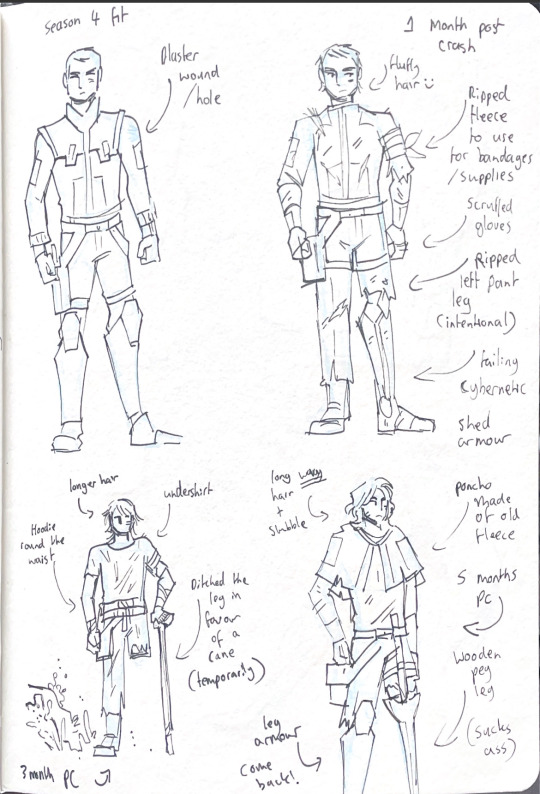 Season 4 fit
Blaster
wound
/hole
1 Month post
crash
fluffy
hair
Ripped
fleece
to use
for bandages
/supplies
scruffed
gloves
Ripped
left pant
leg
(intentional)
failing
cybernetic
shed
armour
longer hair
undershirt
Hoodie
round the
waist
Ditched the
leg in
favour
of a
cane
(temporarily)
3 month PC
long wavy
hair
+
stubble
poncho
made
of old
fleece
5 months
PC
Wooden
peg
leg
(sucks
ass)
leg
armour
come
back!